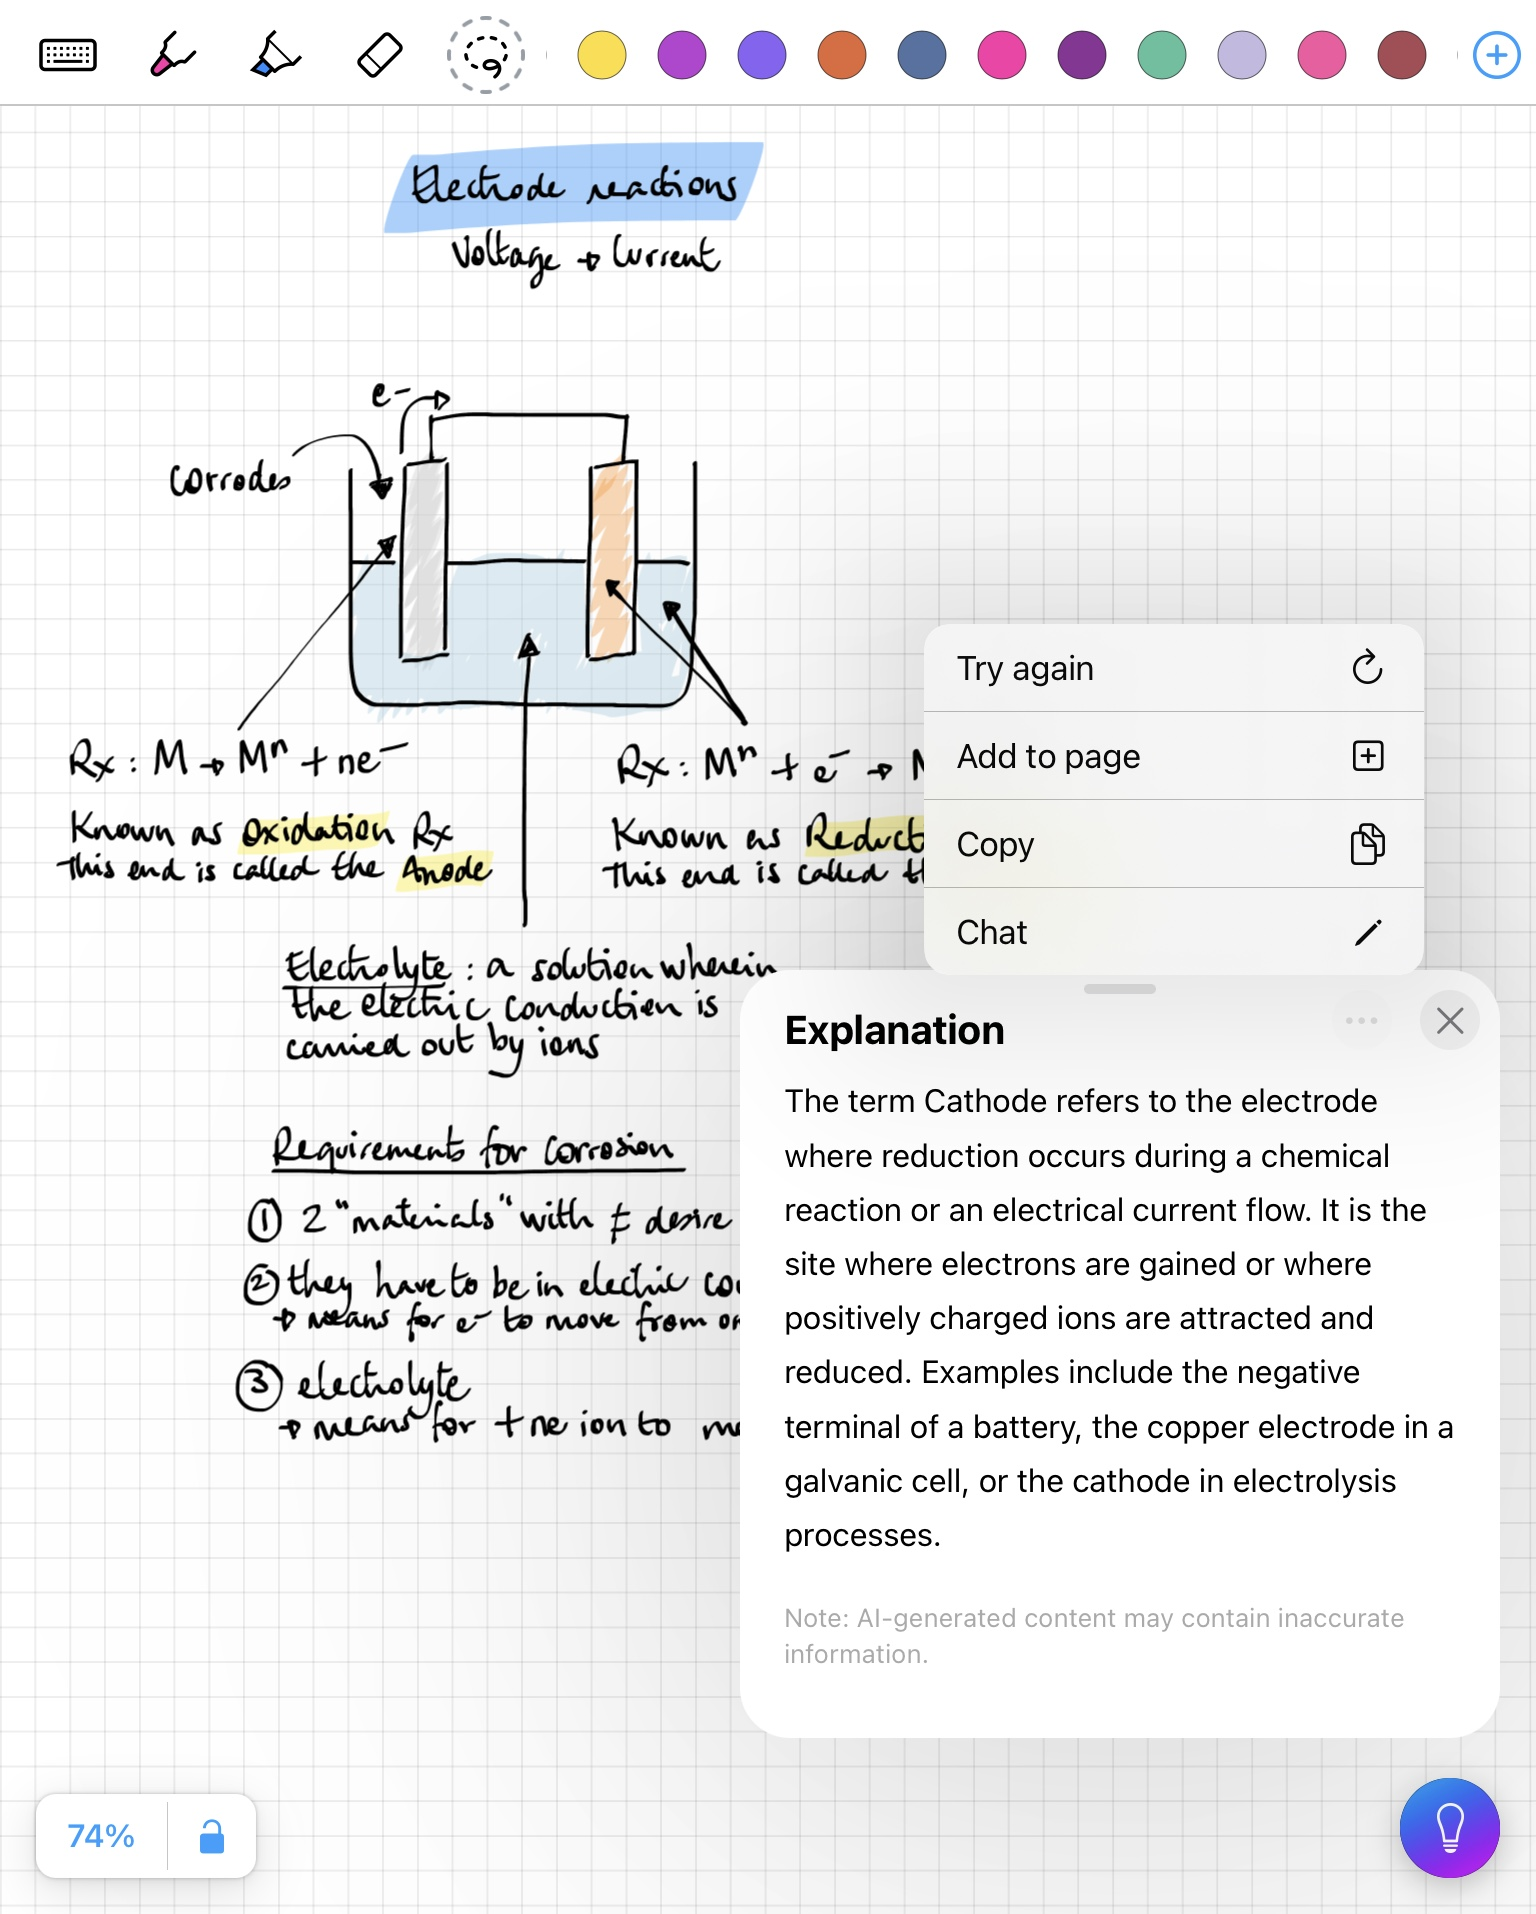 Electrode reactions
Voltage → Current
e-
Corrodes
Rx : M → Mⁿ + ne⁻
Rx : Mⁿ + e⁻ →
Known as Oxidation Rx
This end is called the Anode
Known as Reduct
This end is called
Electrolyte : a solution wherein
the electric conduction is
carried out by ions
Requirements for Corrosion
① 2 "materials" with ≠ desire
② they have to be in electric
→ means for e- to move from
③ electrolyte
→ means for +ne ion to
Try again
Add to page
Copy
Chat
Explanation
The term Cathode refers to the electrode
where reduction occurs during a chemical
reaction or an electrical current flow. It is the
site where electrons are gained or where
positively charged ions are attracted and
reduced. Examples include the negative
terminal of a battery, the copper electrode in a
galvanic cell, or the cathode in electrolysis
processes.
Note: AI-generated content may contain inaccurate
information.
74%